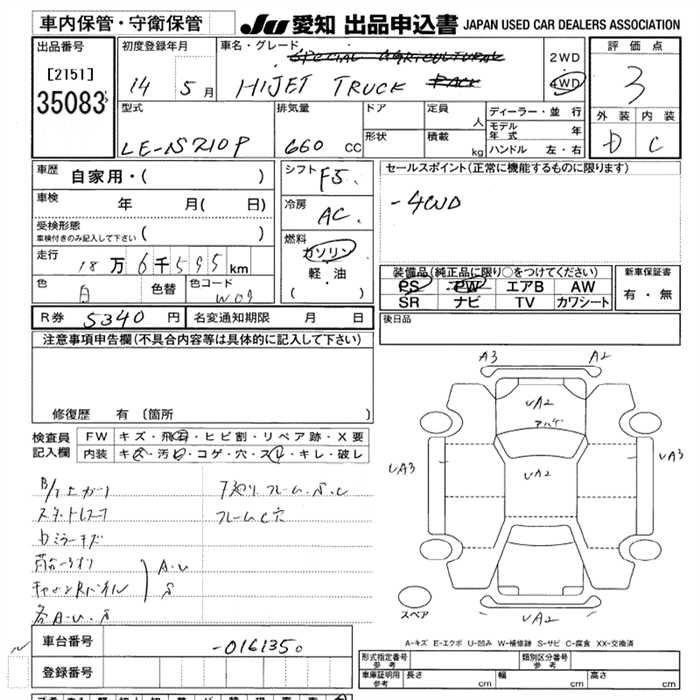 車内保管・守衛保管 JU 愛知 出品申込書 JAPAN USED CAR DEALERS ASSOCIATION
出品番号 初度登録年月 車名・グレード SPECIAL AGRICULTURAL 2WD 評価点
[2151] 14 5月 HIJET TRUCK PACK 4WD 3
35083
型式 排気量 ドア 定員 人 ディーラー・並行 外装 内装
LE-S210P 660 CC 形状 積載 kg モデル年式 年 D C
ハンドル 左・右
車歴 自家用・( ) シフト F5 セールスポイント(正常に機能するものに限ります)
車検 年 月( 日) 冷房 AC -4WD
受検形態 ( )
車検付きのみ記入して下さい
燃料 ガソリン
走行 18万6千595km 軽・油 装備品(純正品に限り○をつけてください) 新車保証書
色 白 色替 色コード W09 ( ) PS PW エアB AW 有・無
SR ナビ TV カワシート
R券 5340円 名変通知期限 月 日 後日品
注意事項申告欄(不具合内容等は具体的に記入して下さい)
A3 A2
UA2
アハゲ
修復歴 有 (箇所 )
検査員 FW キズ・飛石・ヒビ割・リペア跡・X要
記入欄 内装 キズ・汚れ・コゲ・穴・スレ・キレ・破レ
UA3 UA2 UA3
下廻リフレームS.C
フレームC穴
A.U
S
各A・U・S
スペア UA2
車台番号 -016135
A-キズ E-エクボ U-凹み W-補修跡 S-サビ C-腐食 XX-交換済
登録番号
形式指定番号 参考 類別区分番号 参考
車庫証明用 参考 長さ cm 幅 cm 高さ cm